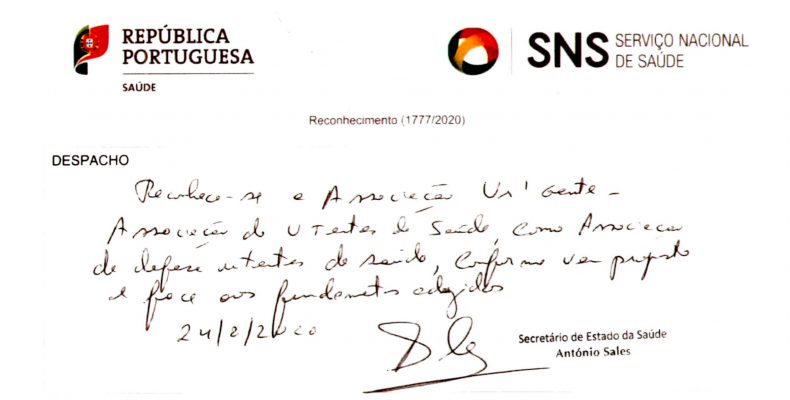 REPÚBLICA
PORTUGUESA
SAÚDE
SNS SERVIÇO NACIONAL
DE SAÚDE
Reconhecimento (1777/2020)
DESPACHO
Reconhece-se a Associação
Associação de Utentes de Saúde, como Associação
de defesa utentes de saúde, conforme vem proposto
e face aos fundamentos
24/8/2020
Secretário de Estado da Saúde
António Sales